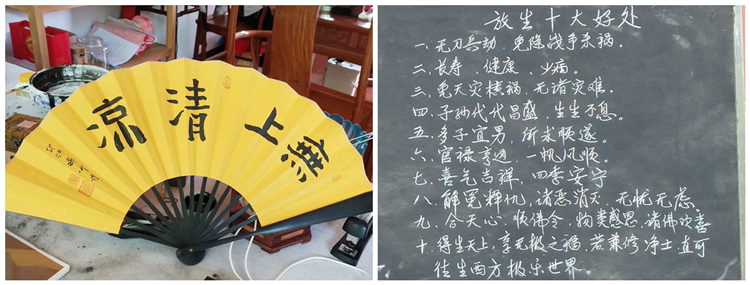 無上清凉
放生十大好处
一、无刀兵劫，免除战争杀祸。
二、长寿、健康、少病。
三、免天灾横祸，无诸灾难。
四、子孙代代昌盛，生生不息。
五、多子宜男，所求顺遂。
六、官禄亨通，一帆风顺。
七、喜气吉祥，四季安宁
八、解冤释仇，诸恶消灭，无忧无虑。
九、合天心，顺佛令，物类感恩，诸佛欢喜
十、得生天上，享无极之福，若兼修净土，直可
往生西方极乐世界。